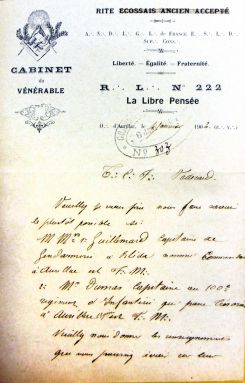 RITE ECOSSAIS ANCIEN ACCEPTÉ
A∴ N∴ D∴ L∴ G∴ L∴ de FRANCE E∴ S∴ L∴ D∴
SUP∴ CONS∴
Liberté. — Égalité. — Fraternité.
CABINET
du
VÉNÉRABLE
R∴ L∴ N° 222
La Libre Pensée
O∴ d'Aurillac, le
T∴ C∴ F∴ Vadecard
Veuillez je vous prie nous faire savoir
le plutôt possible si:
M Mr 1: Guillemard Capitaine de
Gendarmerie à Blida nommé Commandant
à Aurillac est F∴ M∴
2: Mr Dumas Capitaine au 100e
régiment d'Infanterie qui passe
à Aurillac est F∴ M∴
Veuillez nous donner les renseignements
que vous pourrez avoir sur leur